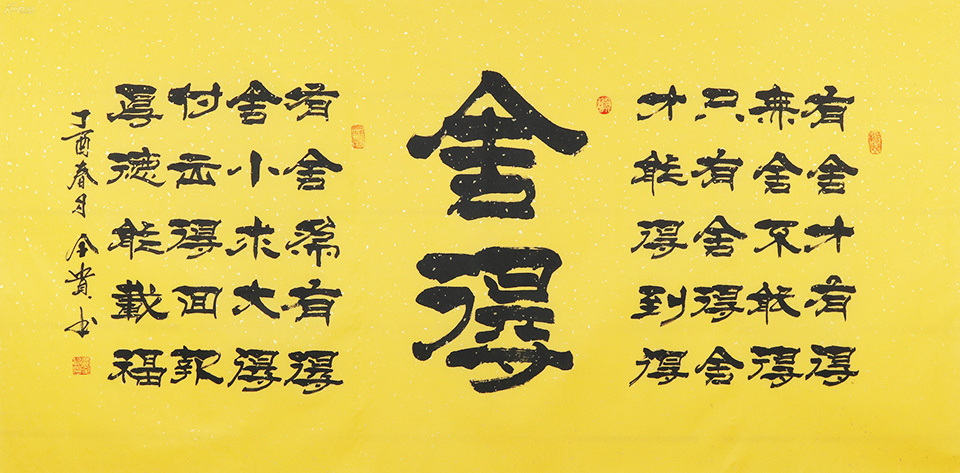 有舍才有得
無舍不能得
只有舍得舍
才能得到得
舍得
有舍為有得
舍小求大得
付出得回報
厚德能載福
丁酉春月全貴书